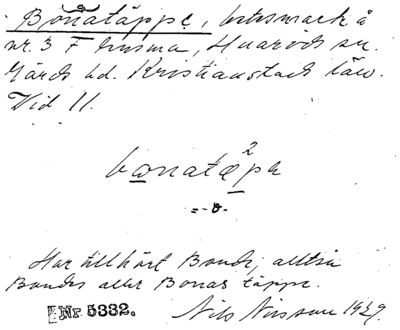 Bonatäppe, betesmark å
nr. 3 F husma, Huaröds sn.
Gärds hd. Kristianstads län.
Vid 11.
bonatæ²pe
=-o-
Har tillhört Bonde, alltså
Bondes eller Bonas täppe.
Nr. 5332. Nils Nilsson 1929.